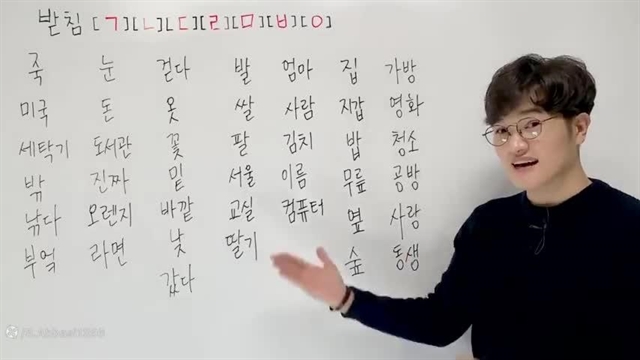 받침 [ㄱ][ㄴ][ㄷ][ㄹ][ㅁ][ㅂ][ㅇ]
죽 눈 걷다 발 엄마 집 가방
미국 돈 옷 쌀 사람 지갑 영화
세탁기 도서관 꽃 팔 김치 밥 청소
밖 진짜 밑 서울 이름 무릎 공방
낚다 오렌지 바깥 교실 컴퓨터 옆 사랑
부엌 라면 낮 딸기 숲 동생
갔다